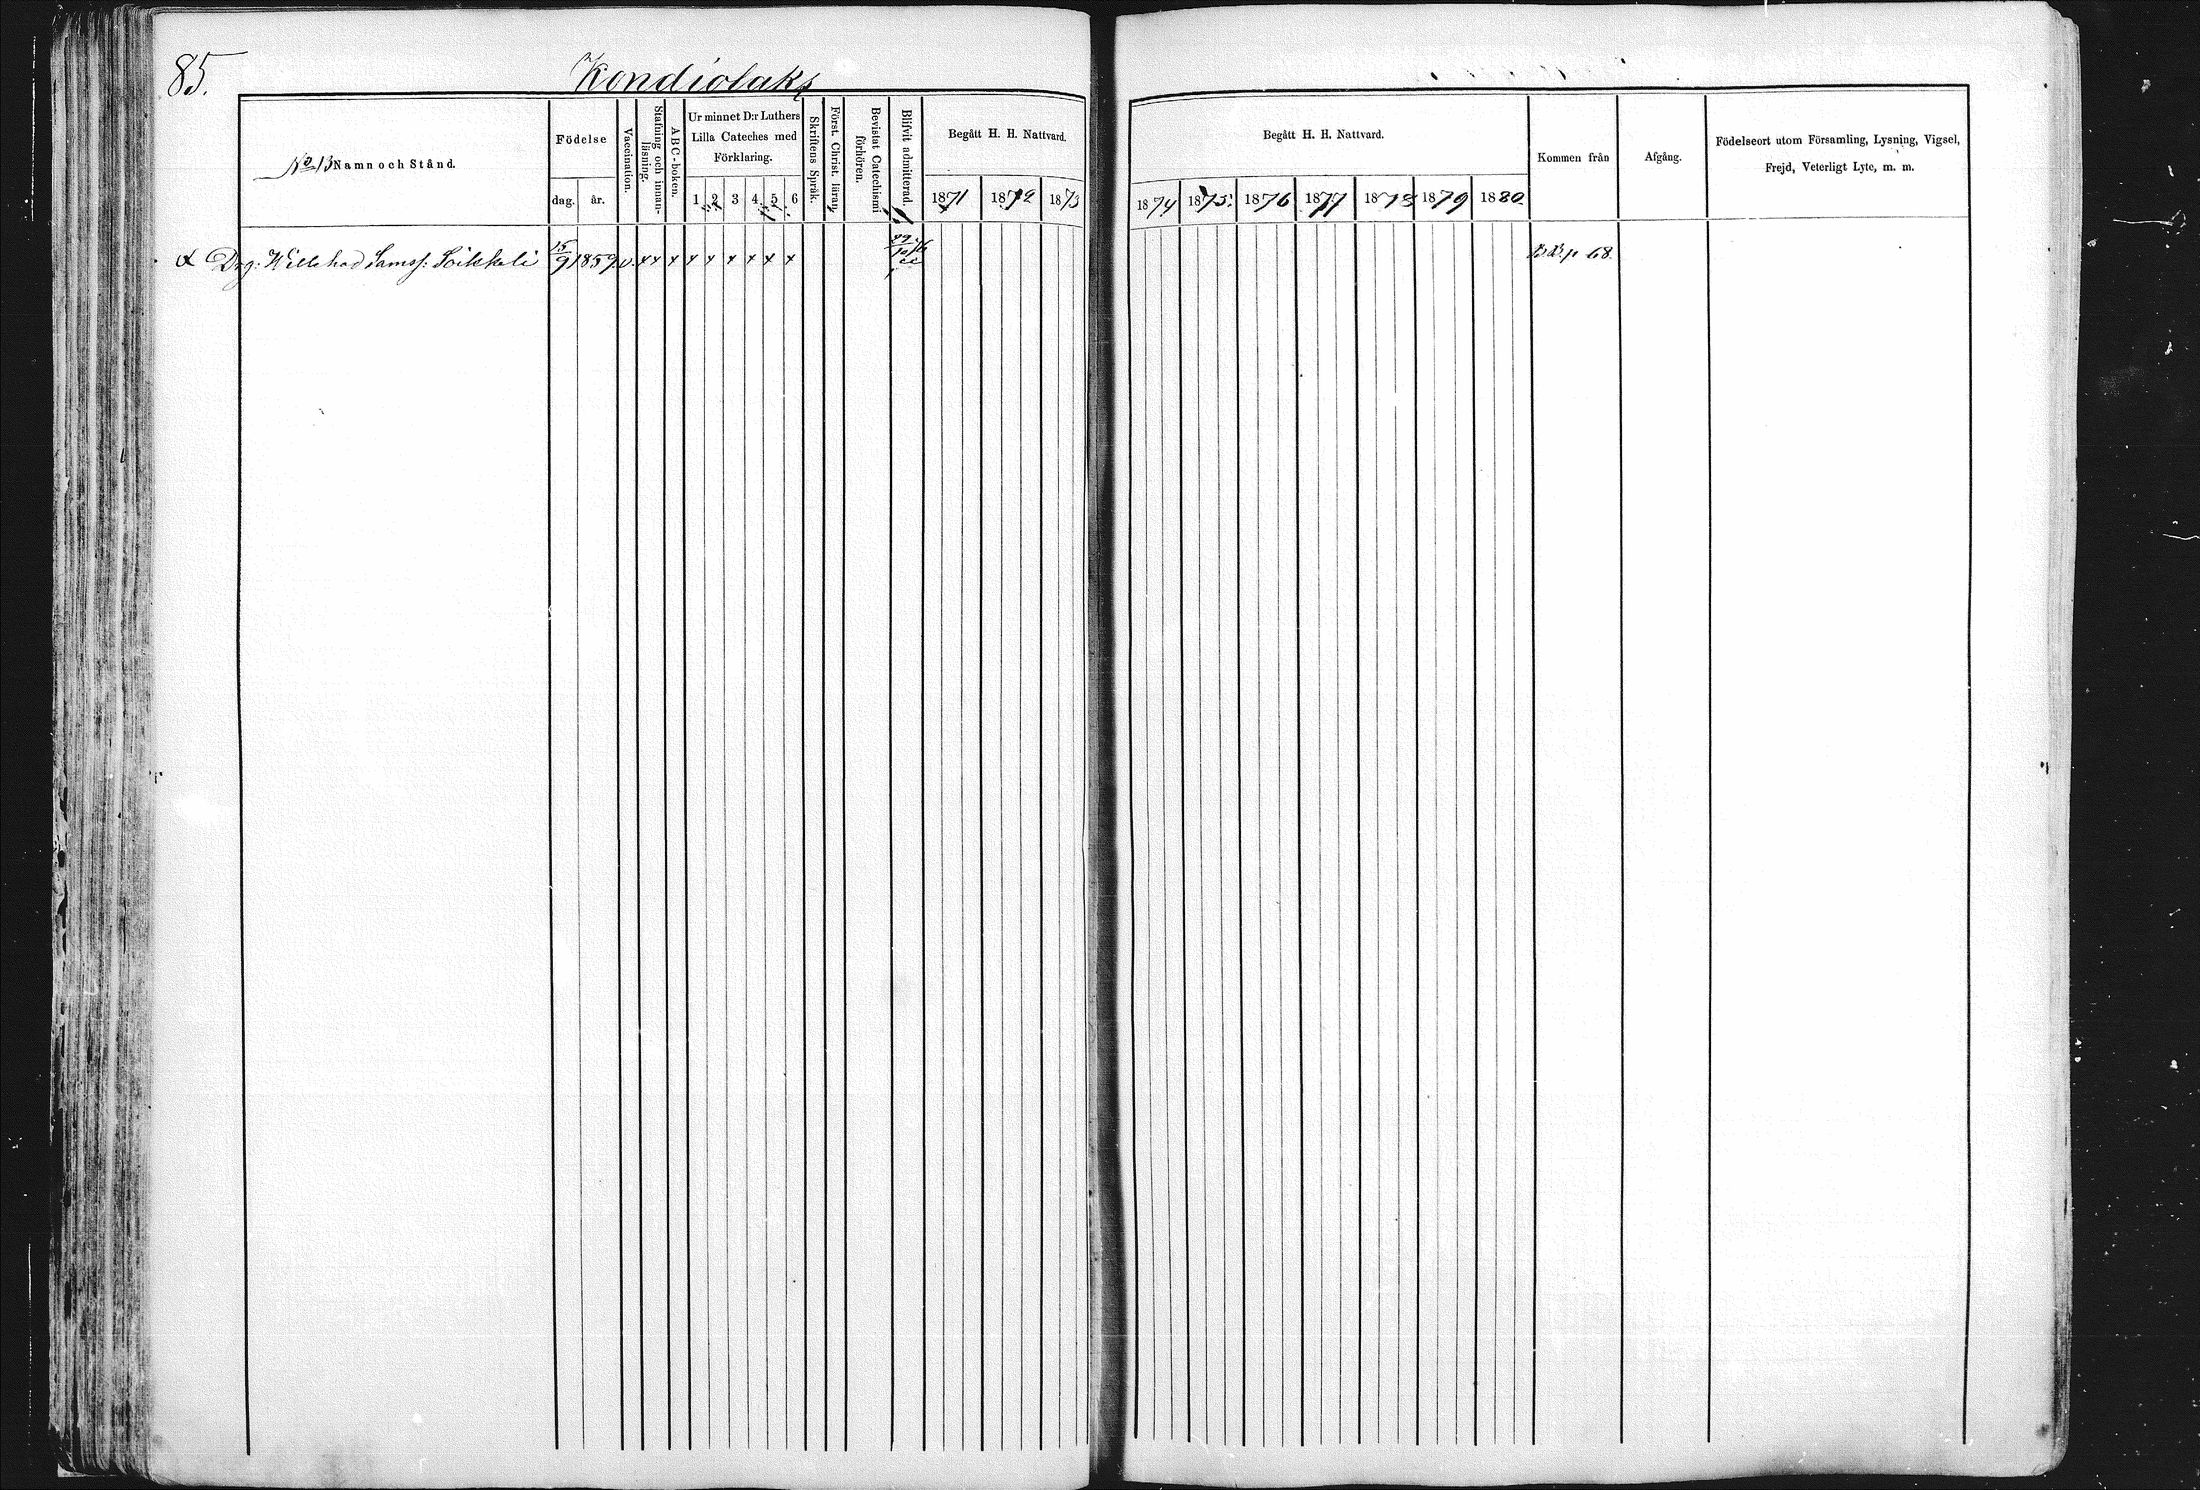 85.
Kondiolaks
No 13 Namn och Stånd.
Födelse
dag. år.
Vaccination.
Stafning och innan-
läsning.
ABC-boken.
Ur minnet D:r Luthers
Lilla Cateches med
Förklaring.
1 2 3 4 5 6
Skriftens Språk.
Först. Christ. läran.
Bevistat Catechismi
förhören.
Blifvit admitterad.
Begått H. H. Nattvard.
1871 1872 1873
Begått H. H. Nattvard.
1874 1875 1876 1877 1878 1879 1880
Kommen från
Afgång.
Födelseort utom Församling, Lysning, Vigsel,
Frejd, Veterligt Lyte, m. m.
Drg: Willehad Samss: Soikkeli 15/9 1859 v. x x x x x x x x x p 68.